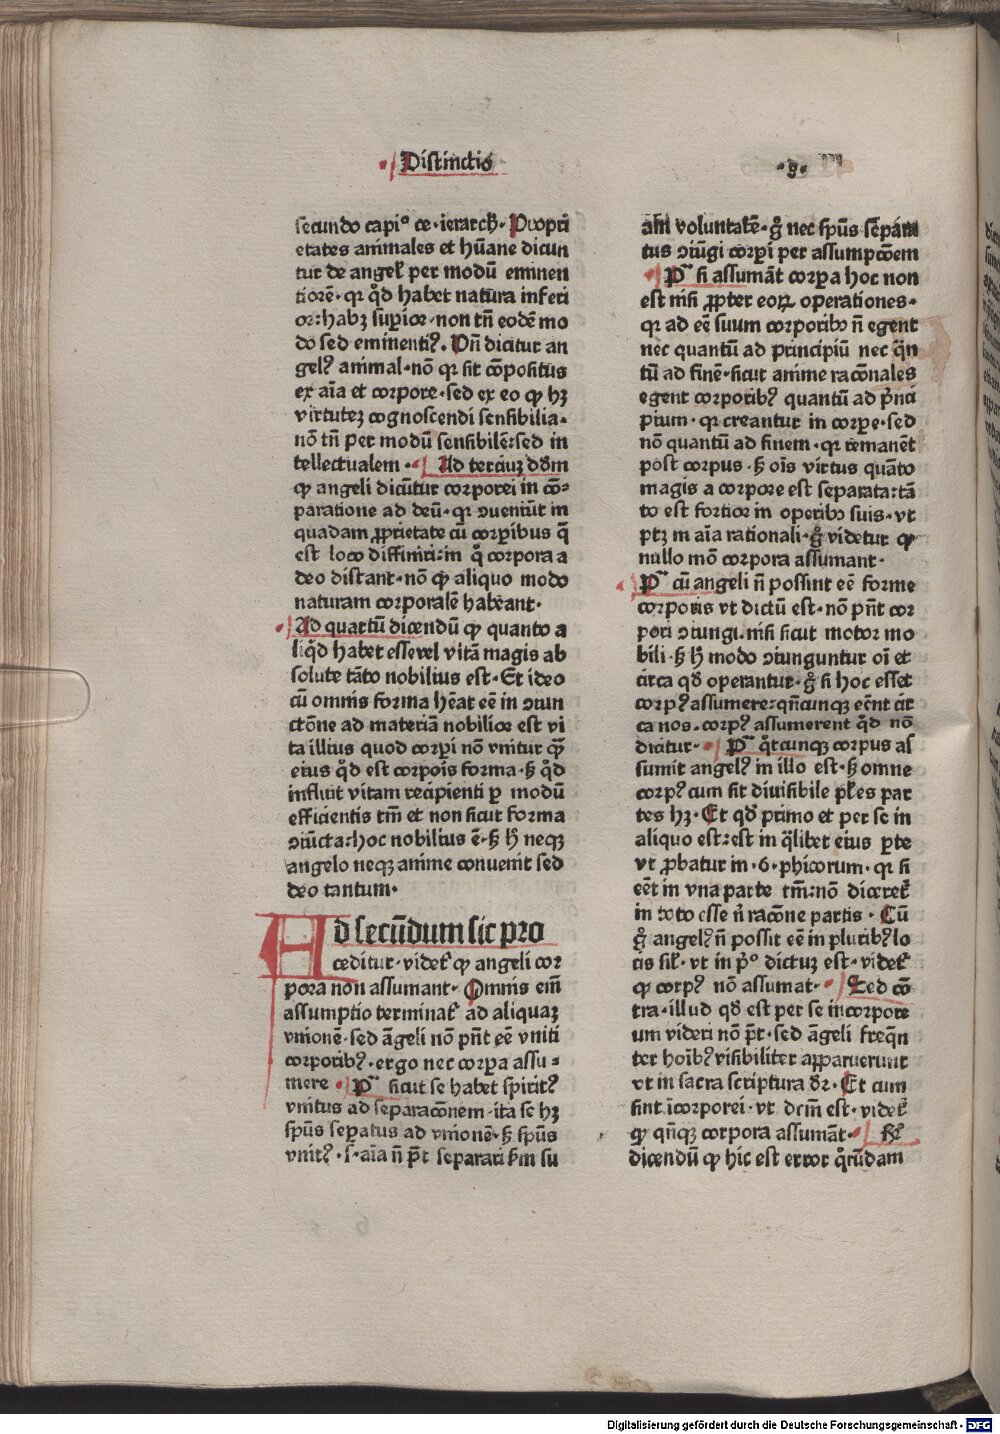 Distinctio
·8·
secundo capi° ce·ierarch̃· Propri
etates animales et hūane dicun
tur de angel̃ per modū eminen
tiorē·qr q̊d habet natura inferi
or:habꝫ supior·non tñ eodē mo
do sed eminentiꝰ. Pñ dicitur an
gelꝰ animal·nō qr sit cōpositus
ex aīa et corpore·sed ex eo ꝙ hꝫ
virtuteꝫ cognoscendi sensibilia·
nō tñ per modū sensibilē:sed in
tellectualem· Ad terciuꝫ dōm
ꝙ angeli dicūtur corporei in cō-
paratione ad deū·qr ɔueniūt in
quadam ꝓprietate cū corpibus q̄
est loco diffiniri:in q̊ corpora a
deo distant·nō ꝙ aliquo modo
naturam corporalē habeant·
Ad quartū dicendū ꝙ quanto a
liq̊d habet esse vel vitā magis ab
solute tāto nobilius est·Et ideo
cū omnis forma hēat eē in ɔiun
ctōne ad materiā nobilior est vi
ta illius quod corpi nō vnitur ꝙ̄
eius q̊d est corpoīs forma·ẜ q̊d
influit vitam recipienti p modū
efficientis tm̄ et non sicut forma
ɔiūcta:hoc nobilius ē·ẜ h̄ neqꝫ
angelo neqꝫ anime conuenit sed
deo tantum·
Ad secūdum sic pro
ceditur·videt᷑ ꝙ angeli cor
pora non assumant· Omnis em̄
assumptio terminat᷑ ad aliquaꝫ
vnionē·sed āgeli nō pn̄t eē vniti
corporibꝰ·ergo nec corpa assu-
mere· Pᵃ sicut se habet spiritꝰ
vnitus ad separacōnem·ita se hꝫ
spūs sepatus ad vnionē·ẜ spūs
vnitꝰ·ſ·aīa n̄ pōt separari ẜm su
am voluntatē·g̊ nec spūs sepam
tus ɔiūgi corpi per assumpcōem
Pᵃ si assumāt corpa hoc non
est nisi ꝓpter eoꝝ operationes·
qr ad eē suum corporibꝰ n̄ egent
nec quantū ad principiū nec q̄n
tū ad finē·sicut anime racōnales
egent corporibꝰ quantū ad pnci
pium·qr creantur in corpe·sed
nō quantū ad finem·qr remanēt
post corpus·ẜ oīs virtus quāto
magis a corpore est separata:tā
to est fortior in operibꝰ suis·vt
ptꝫ in aīa rationali·g̊ videtur ꝙ
nullo mō corpora assumant·
Pᵃ cū angeli n̄ possint eē forme
corporis vt dictū est·nō pn̄t cor
pori ɔiungi.nisi sicut motor mo
bili·ẜ h̄ modo ɔiunguntur oī et
circa qd̄ operantur·g̊ si hoc esset
corpꝰ assumere:qn̄cunqꝫ eēnt cir
ca nos·corpꝰ assumerent q̊d nō
dicitur· Pᵃ q̊tcunqꝫ corpus as
sumit angelꝰ in illo est·ẜ omne
corpꝰ cum sit diuisibile pl̄es par
tes hꝫ·Et qd̄ primo et per se in
aliquo est:est in q̄libet eius pte
vt ꝓbatur in·6·phicorum·qr si
eēt in vna parte tm̄:nō diceret᷑
in toto esse nͥ racōne partis· Cū
g̊ angelꝰ n̄ possit eē in pluribꝰ lo
cis sil̄·vt in p̊ dictuꝫ est·videt᷑
ꝙ corpꝰ nō assumat· Sed cō
tra·illud qd̄ est per se incorpore
um videri nō pōt·sed āgeli freq̄n
ter hoībꝰ visibiliter apparuerunt
vt in sacra scriptura dr̄·Et cum
sint īcorporei·vt dcm̄ est·videt᷑
ꝙ qn̄qꝫ corpora assumāt· Rͦ
dicendū ꝙ hic est error q̊rūdam
Digitalisierung gefördert durch die Deutsche Forschungsgemeinschaft - DFG